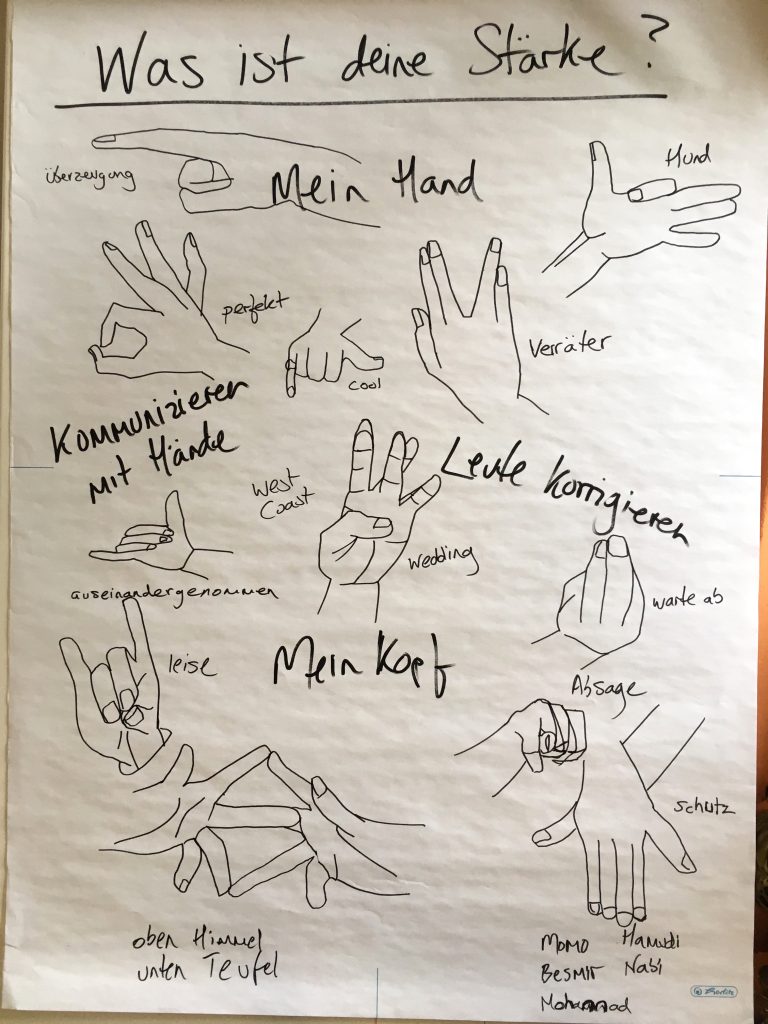 Was ist deine Stärke?
überzeugung
Mein Hand
Hund
perfekt
cool
Verräter
Kommunizieren
mit Hände
West
Coast
wedding
Leute Korrigieren
auseinandergenommen
warte ab
leise
Mein Kopf
Absage
schutz
oben Himmel
unten Teufel
Momo
Hamudi
Besmir
Nabi
Mohammad